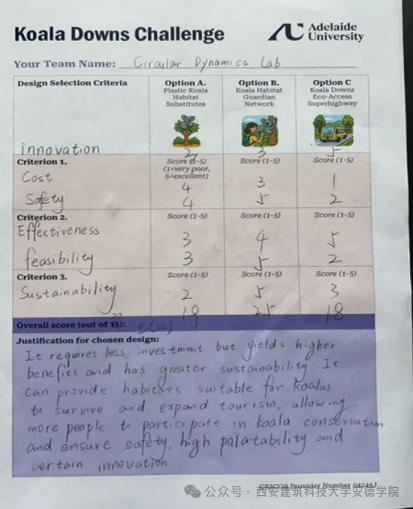 Koala Downs Challenge
Adelaide
University
Your Team Name: Circular Dynamics Lab
Design Selection Criteria
Option A.
Plastic Koala
Habitat
Substitutes
Option B.
Koala Habitat
Guardian
Network
Option C
Koala Downs
Eco-Access
Superhighway
innovation 2 3 5
Criterion 1.
Score (1-5)
(1=very poor,
5=excellent)
Score (1-5)
Score (1-5)
Cost 4 3 1
Safety 4 5 2
Criterion 2.
Score (1-5)
Score (1-5)
Score (1-5)
Effectiveness 3 4 5
feasibility 3 5 2
Criterion 3.
Score (1-5)
Score (1-5)
Score (1-5)
Sustainability 2 5 3
18 25 18
Overall score (out of 15):
Justification for chosen design:
It requires less investment but yields higher
benefits and has greater sustainability It
can provide habitats suitable for koalas
to survive and expand tourism, allowing
more people to participate in koala conservation
and ensure safety, high palatability and
certain innovation
CRICOS Provider Number
公众号 · 西安建筑科技大学安德学院